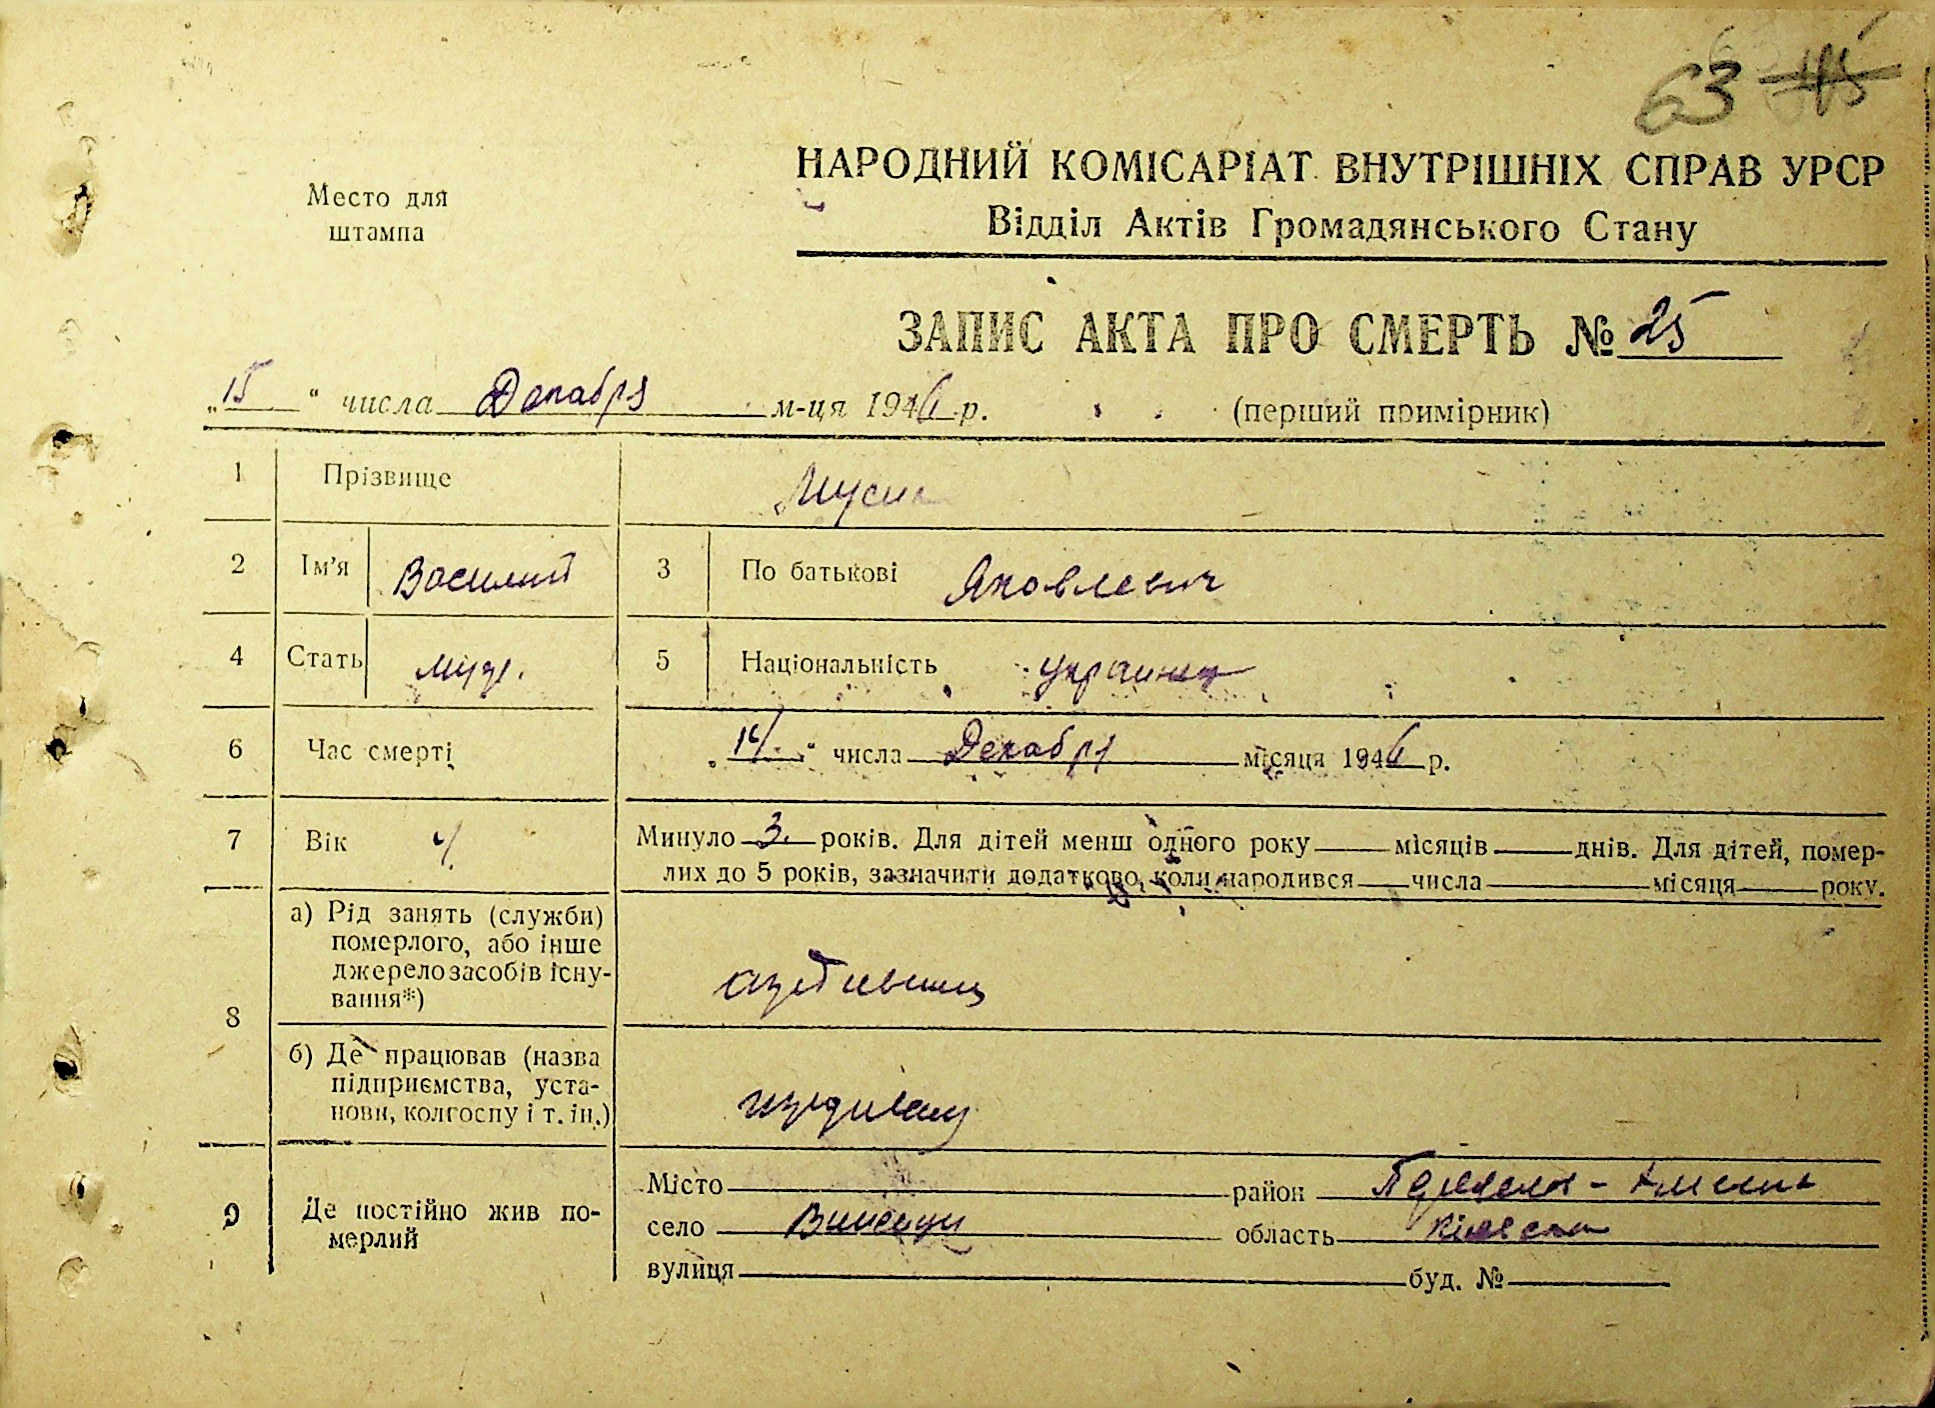 63
Место для
штампа
НАРОДНИЙ КОМІСАРІАТ ВНУТРІШНІХ СПРАВ УРСР
Відділ Актів Громадянського Стану
ЗАПИС АКТА ПРО СМЕРТЬ № 25
„15“ числа Декабря м-ця 1946 р. (перший примірник)
1 Прізвище
2 Ім'я Василий 3 По батькові Яковлевич
4 Стать муж. 5 Національність украинец
6 Час смерті „14“ числа Декабря місяця 1946 р.
7 Вік Минуло 3 років. Для дітей менш одного року місяців днів. Для дітей, помер-
лих до 5 років, зазначити додатково, коли народився числа місяця року.
8 а) Рід занять (служби)
померлого, або інше
джерело засобів існу-
вання*)
б) Де працював (назва
підприємства, уста-
нови, колгоспу і т. ін.)
иждивенец
9 Де постійно жив по-
мерлий
Місто район
село область
вулиця буд. №